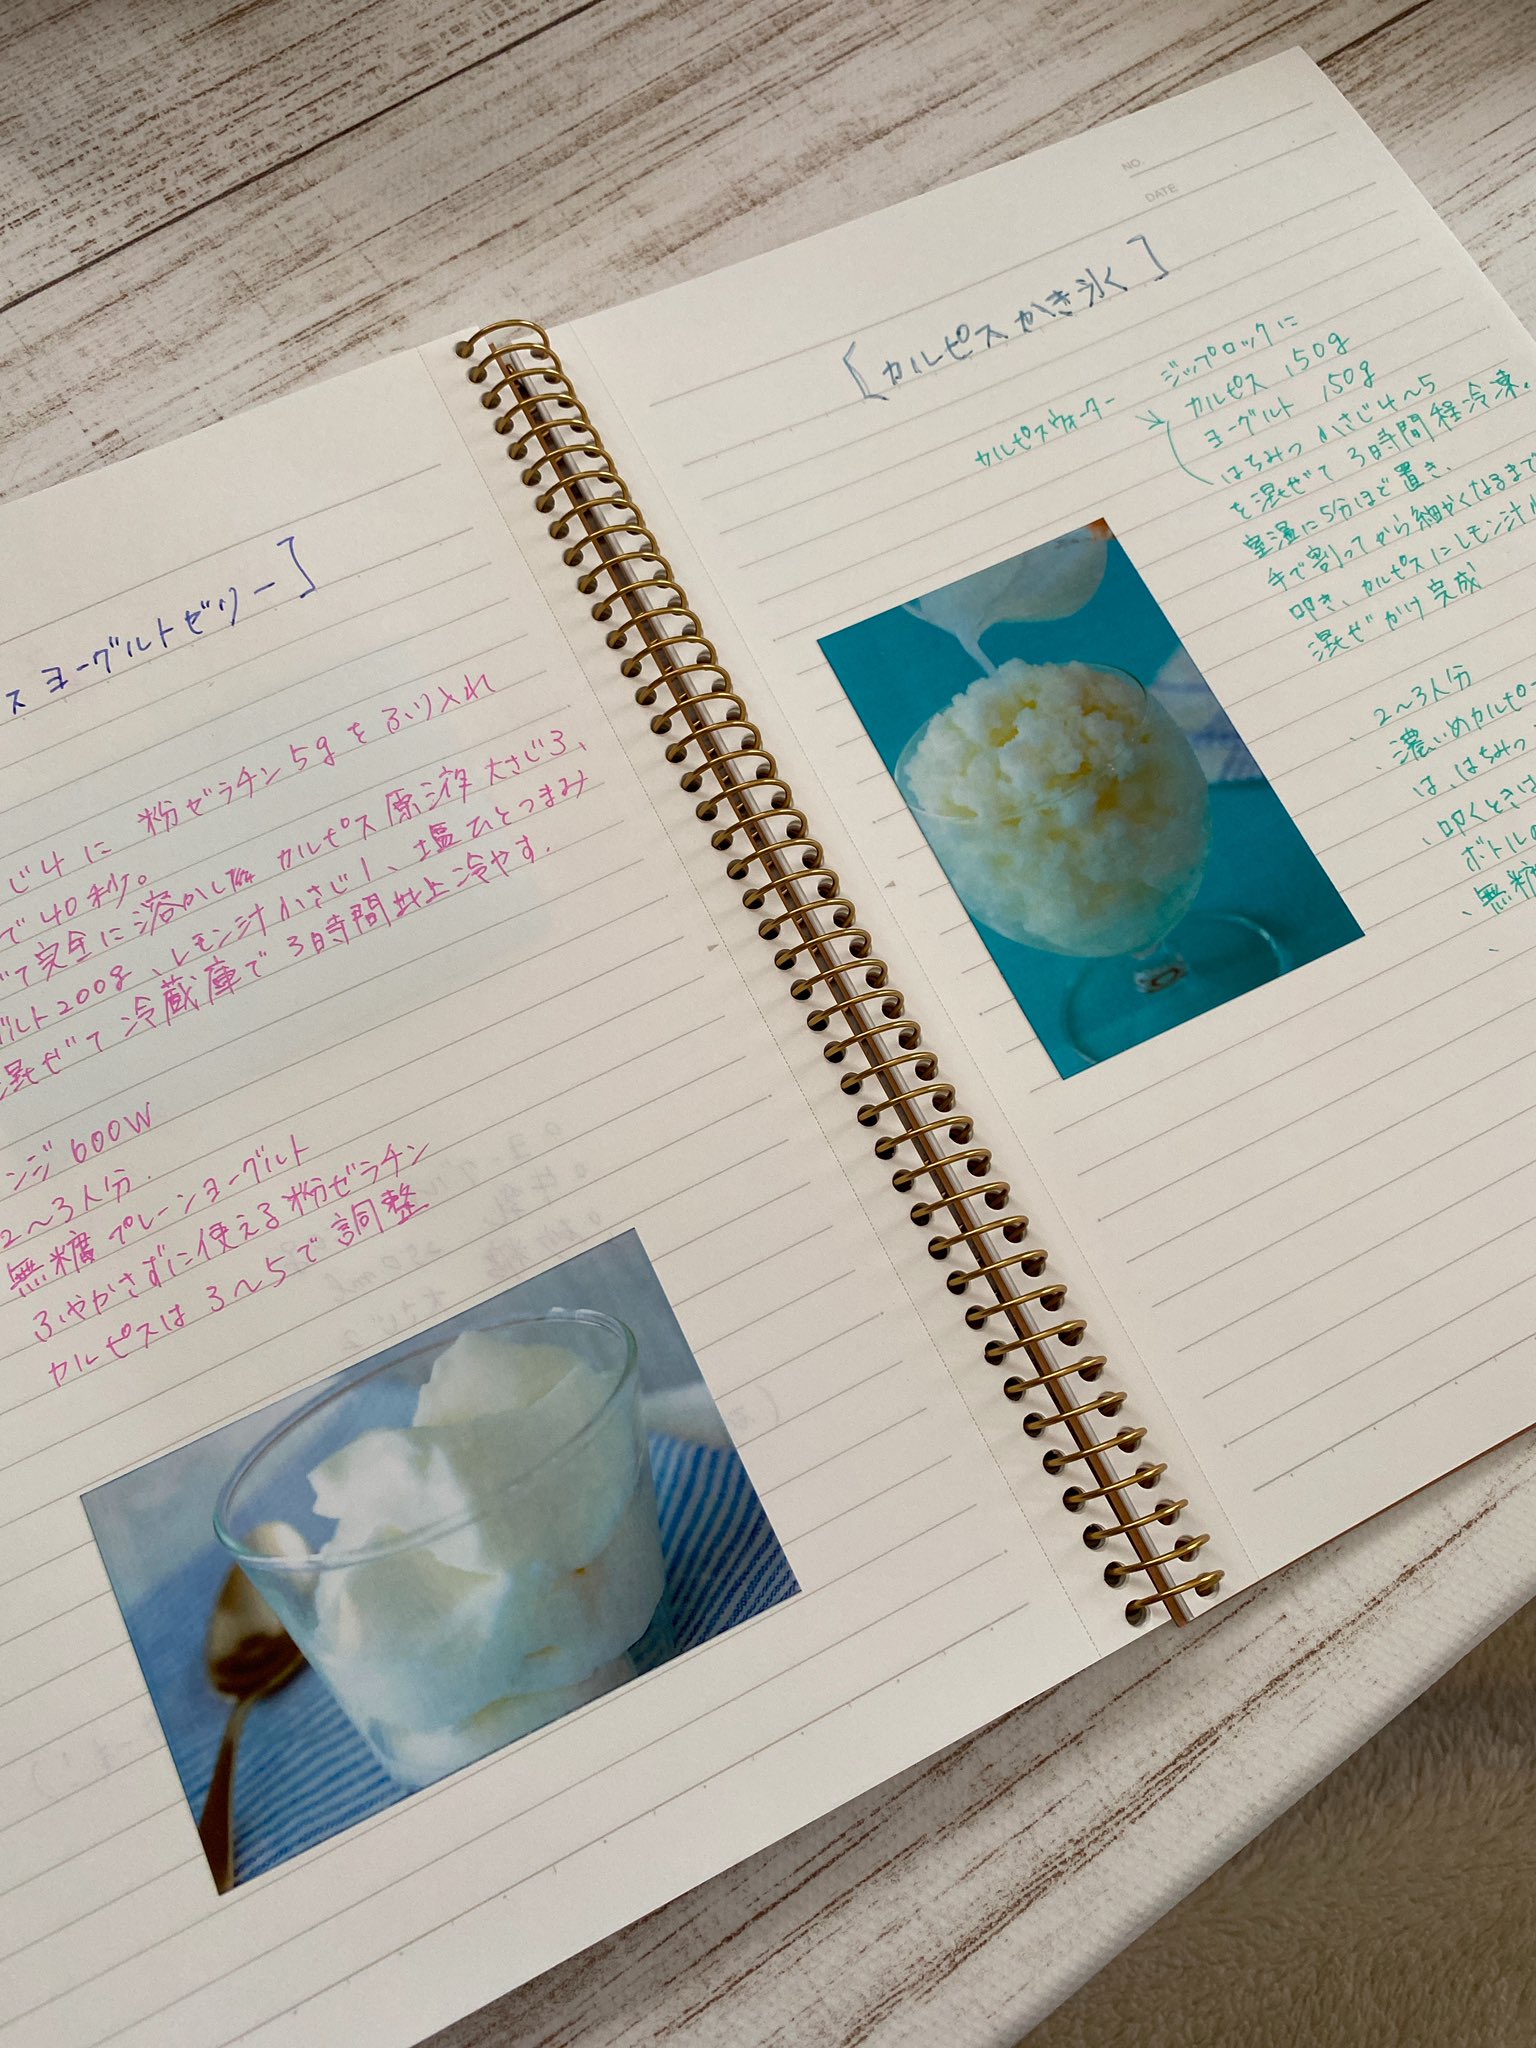 ス ヨーグルトゼリー]
じ4 に 粉ゼラチン5gをふり入れ
で40秒。
て完全に溶かした後 カルピス原液 大さじ3、
ルト200g、レモン汁小さじ1、塩ひとつまみ
混ぜて冷蔵庫で3時間以上冷やす.
ンジ600W
2〜3人分.
無糖プレーンヨーグルト
ふやかさずに使える粉ゼラチン
カルピスは3〜5で調整
NO.
DATE
[カルピスかき氷]
カルピスウォーター
ジップロックに
カルピス 150g
ヨーグルト 150g
はちみつ 小さじ4〜5
を混ぜて 3時間程冷凍。
室温に5分ほど置き、
手で割ってから細かくなるまで
叩き、カルピスにレモン汁
混ぜかけ完成
2〜3人分
、濃いめカルピ
は、はちみつ
、叩くときは
ボトルの
、無糖
、